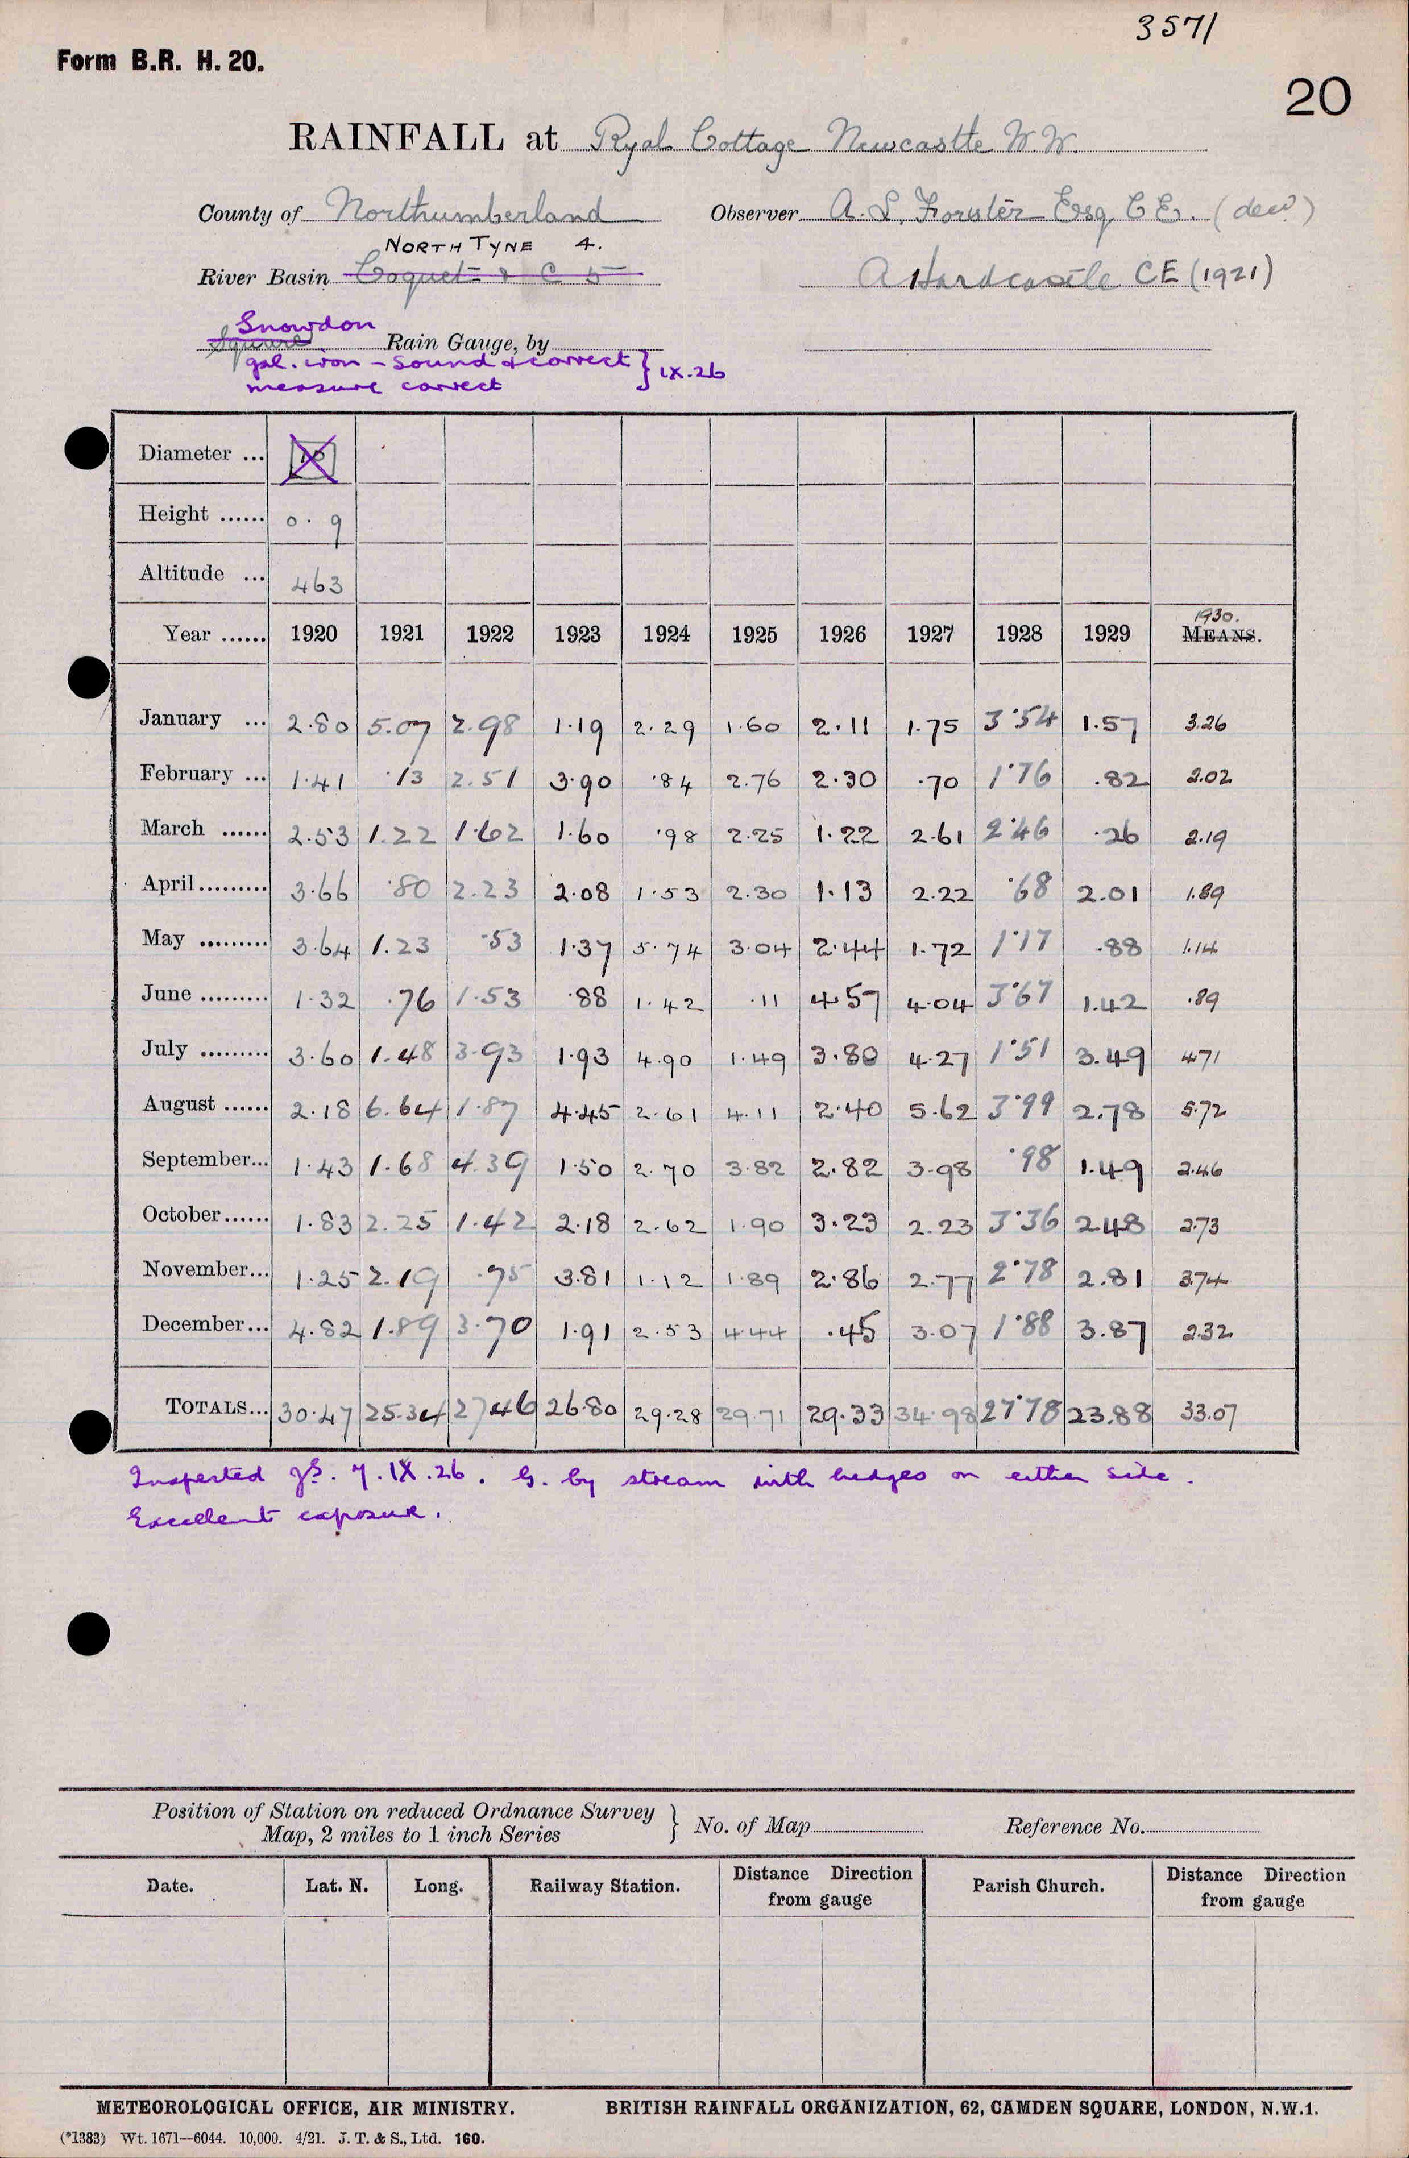 3571
Form B.R. H. 20.
20
RAINFALL at Ryal Cottage Newcastle W.W.
County of Northumberland Observer A. L. Forster Esq C E. (decd)
NORTH TYNE 4.
River Basin Coquet & C 5 A Hardcastle CE (1921)
Snowdon
Square Rain Gauge, by
gal. iron - sound & correct } IX.26
measure correct
Diameter ... 10
Height ...... 0. 9
Altitude ... 463
1930.
Year ...... 1920 1921 1922 1923 1924 1925 1926 1927 1928 1929 MEANS.
January ... 2.80 5.07 2.98 1.19 2.29 1.60 2.11 1.75 3.54 1.57 3.26
February ... 1.41 .13 2.51 3.90 .84 2.76 2.30 .70 1.76 .82 2.02
March ...... 2.53 1.22 1.62 1.60 .98 2.25 1.22 2.61 2.46 .26 2.19
April ......... 3.66 .80 2.23 2.08 1.53 2.30 1.13 2.22 .68 2.01 1.89
May ......... 3.64 1.23 .53 1.37 5.74 3.04 2.44 1.72 1.17 .88 1.14
June ......... 1.32 .76 1.53 .88 1.42 .11 4.57 4.04 3.67 1.42 .89
July ......... 3.60 1.48 3.93 1.93 4.90 1.49 3.80 4.27 1.51 3.49 4.71
August ...... 2.18 6.64 1.87 4.45 2.61 4.11 2.40 5.62 3.99 2.78 5.72
September... 1.43 1.68 4.39 1.50 2.70 3.82 2.82 3.98 .98 1.49 2.46
October...... 1.83 2.25 1.42 2.18 2.62 1.90 3.23 2.23 3.36 2.48 2.73
November... 1.25 2.19 .75 3.81 1.12 1.89 2.86 2.77 2.78 2.81 3.74
December... 4.82 1.89 3.70 1.91 2.53 4.44 .45 3.07 1.88 3.87 2.32
TOTALS... 30.47 25.34 27.46 26.80 29.28 29.71 29.33 34.98 27.78 23.88 33.07
Inspected 7.IX.26. G. by stream with hedges on either side.
Excellent exposure.
Position of Station on reduced Ordnance Survey
Map, 2 miles to 1 inch Series } No. of Map Reference No.
Date. Lat. N. Long. Railway Station. Distance Direction from gauge Parish Church. Distance Direction from gauge
METEOROLOGICAL OFFICE, AIR MINISTRY. BRITISH RAINFALL ORGANIZATION, 62, CAMDEN SQUARE, LONDON, N.W.1.
(*1383) Wt. 1671—6044. 10,000. 4/21. J. T. & S., Ltd. 160.